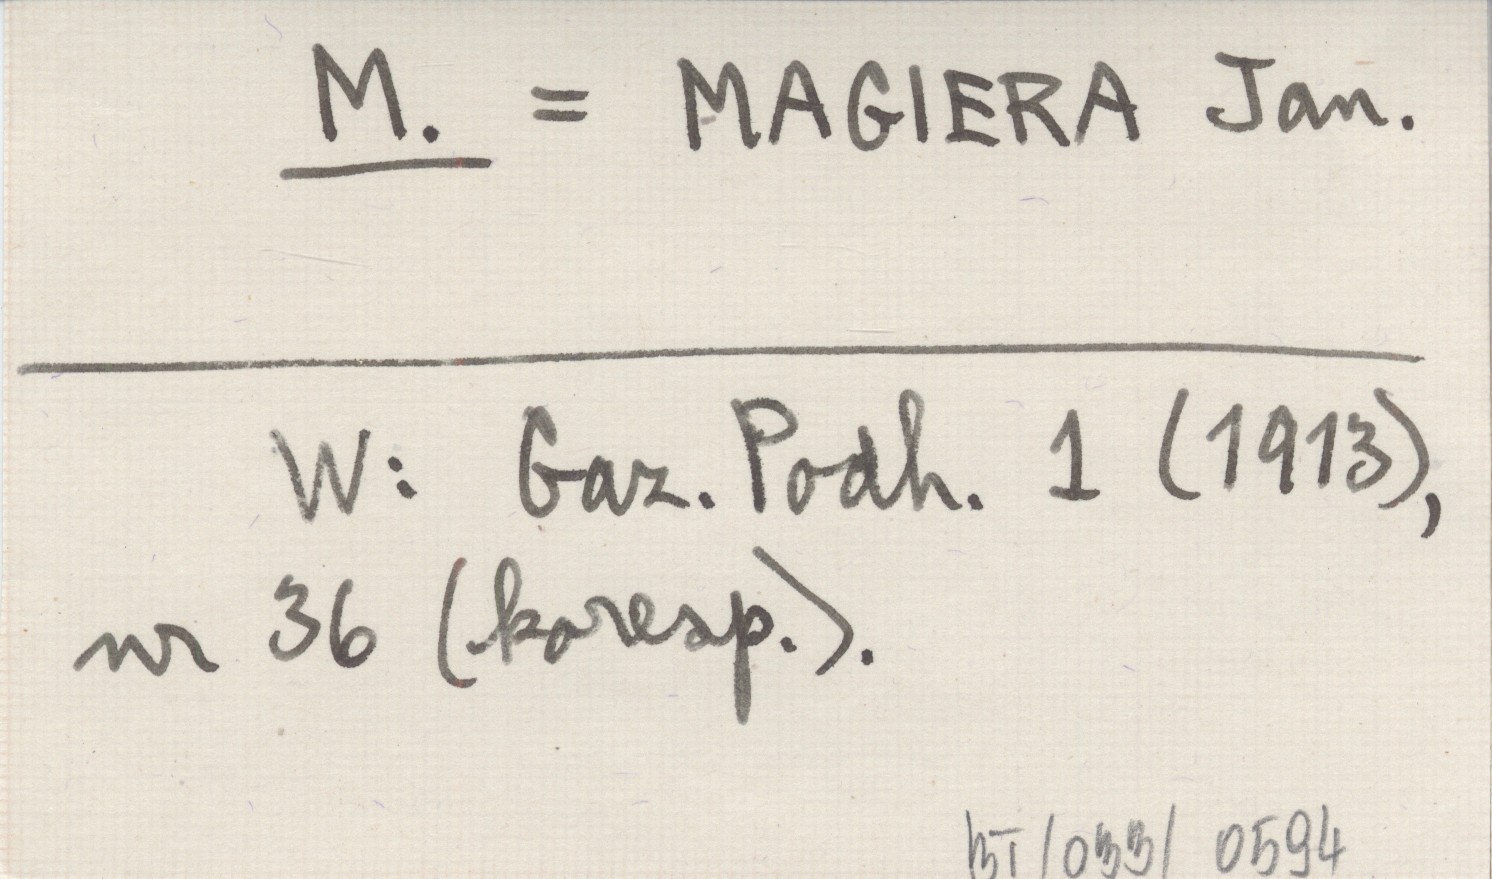 M. = MAGIERA Jan.
W: Gaz. Podh. 1 (1913),
nr 36 (koresp.).
BT/033/ 0594